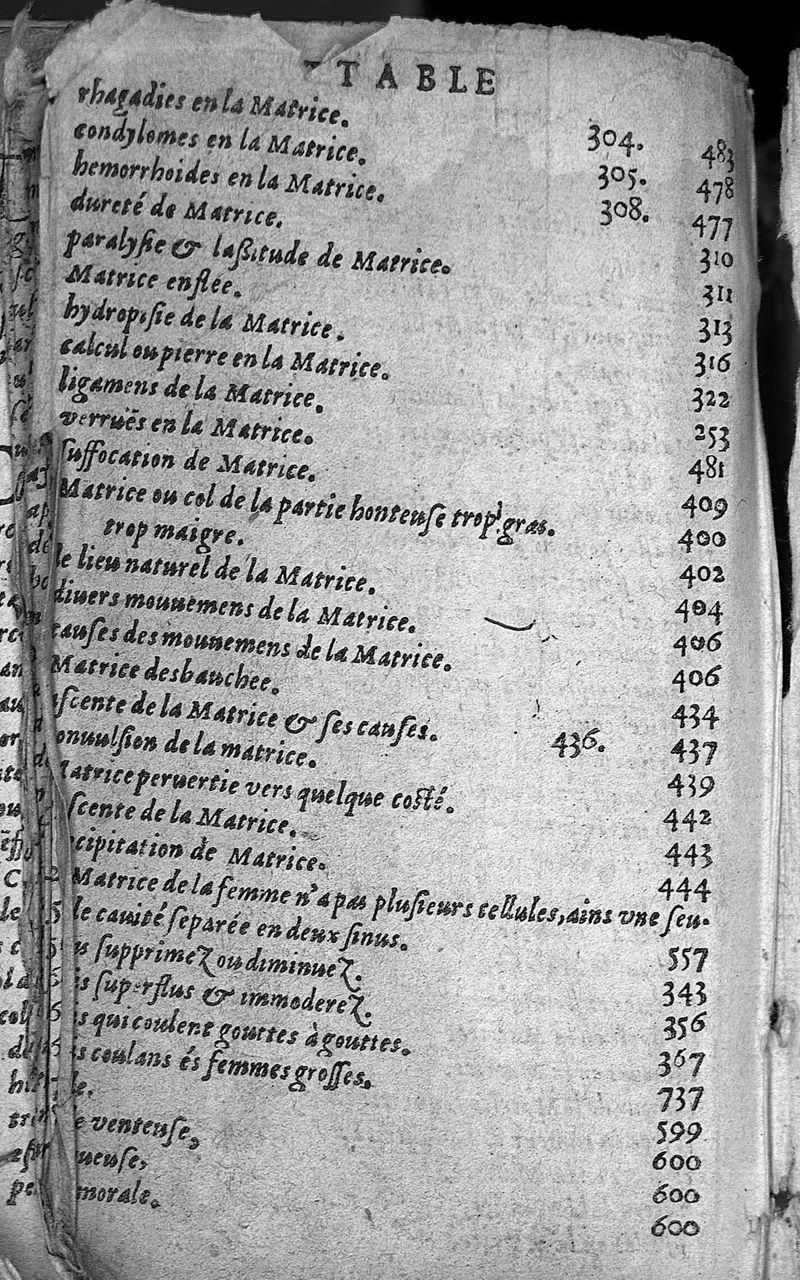 TABLE
rhagadies en la Matrice. 304. 483
condylomes en la Matrice. 305. 478
hemorrhoides en la Matrice. 308. 477
dureté de Matrice. 310
paralyſie & laßitude de Matrice. 311
Matrice enflee. 313
hydropiſie de la Matrice. 316
calcul ou pierre en la Matrice. 322
ligamens de la Matrice. 253
verruës en la Matrice. 481
ſuffocation de Matrice. 409
Matrice ou col de la partie honteuſe trop gras. 400
trop maigre. 402
le lieu naturel de la Matrice. 404
diuers mouuemens de la Matrice. 406
cauſes des mouuemens de la Matrice. 406
Matrice desbauchee. 434
ſcente de la Matrice & ſes cauſes. 436. 437
onuulſion de la matrice. 439
atrice peruertie vers quelque coſté. 442
ſcente de la Matrice. 443
cipitation de Matrice. 444
Matrice de la femme n'a pas pluſieurs cellules, ains vne ſeu-
le cauité ſeparée en deux ſinus. 557
s ſupprimez ou diminuez. 343
s ſuperflus & immoderez. 356
s qui coulent gouttes à gouttes. 367
s coulans és femmes groſſes. 737
le. 599
e venteuſe, 600
ueuſe, 600
morale. 600